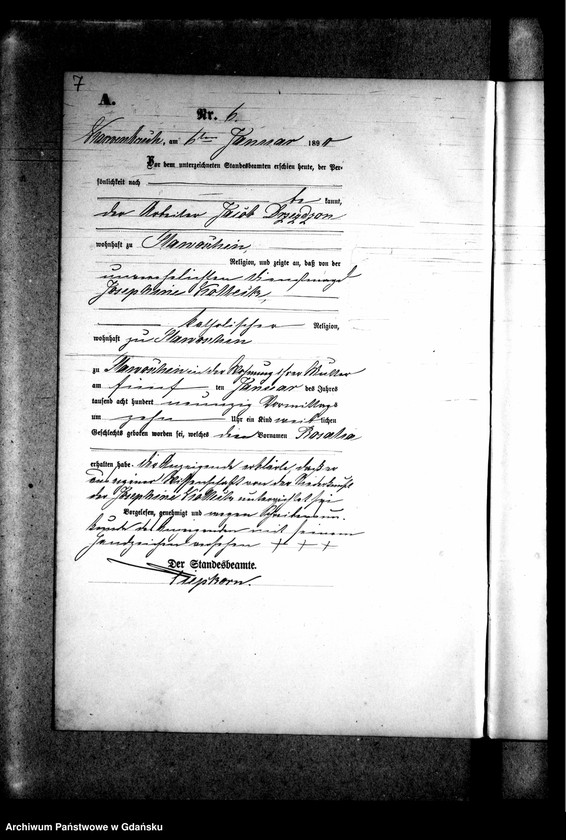 7
A.
Nr. 6.
am 6ten Januar 1890
Vor dem unterzeichneten Standesbeamten erschien heute, der Per-
sönlichkeit nach
be kannt,
der Arbeiter Jacob
wohnhaft zu
Religion, und zeigte an, daß von der
unverehelichten Dienstmagd
Josephine
katholischer Religion,
wohnhaft zu
zu in der Wohnung ihrer Mutter
am fünf ten Januar des Jahres
tausend acht hundert neunzig Vormittags
um zehn Uhr ein Kind weiblichen
Geschlechts geboren worden sei, welches den Vornamen Rosalia
erhalten habe. Der Anzeigende erklärte, daß er
aus eigener Wissenschaft von der Niederkunft
der Josephine unterrichtet sei
Vorgelesen, genehmigt und wegen Schreibensun-
kunde des Anzeigenden mit seinem
Handzeichen versehen + + +
Der Standesbeamte.
Archiwum Państwowe w Gdańsku